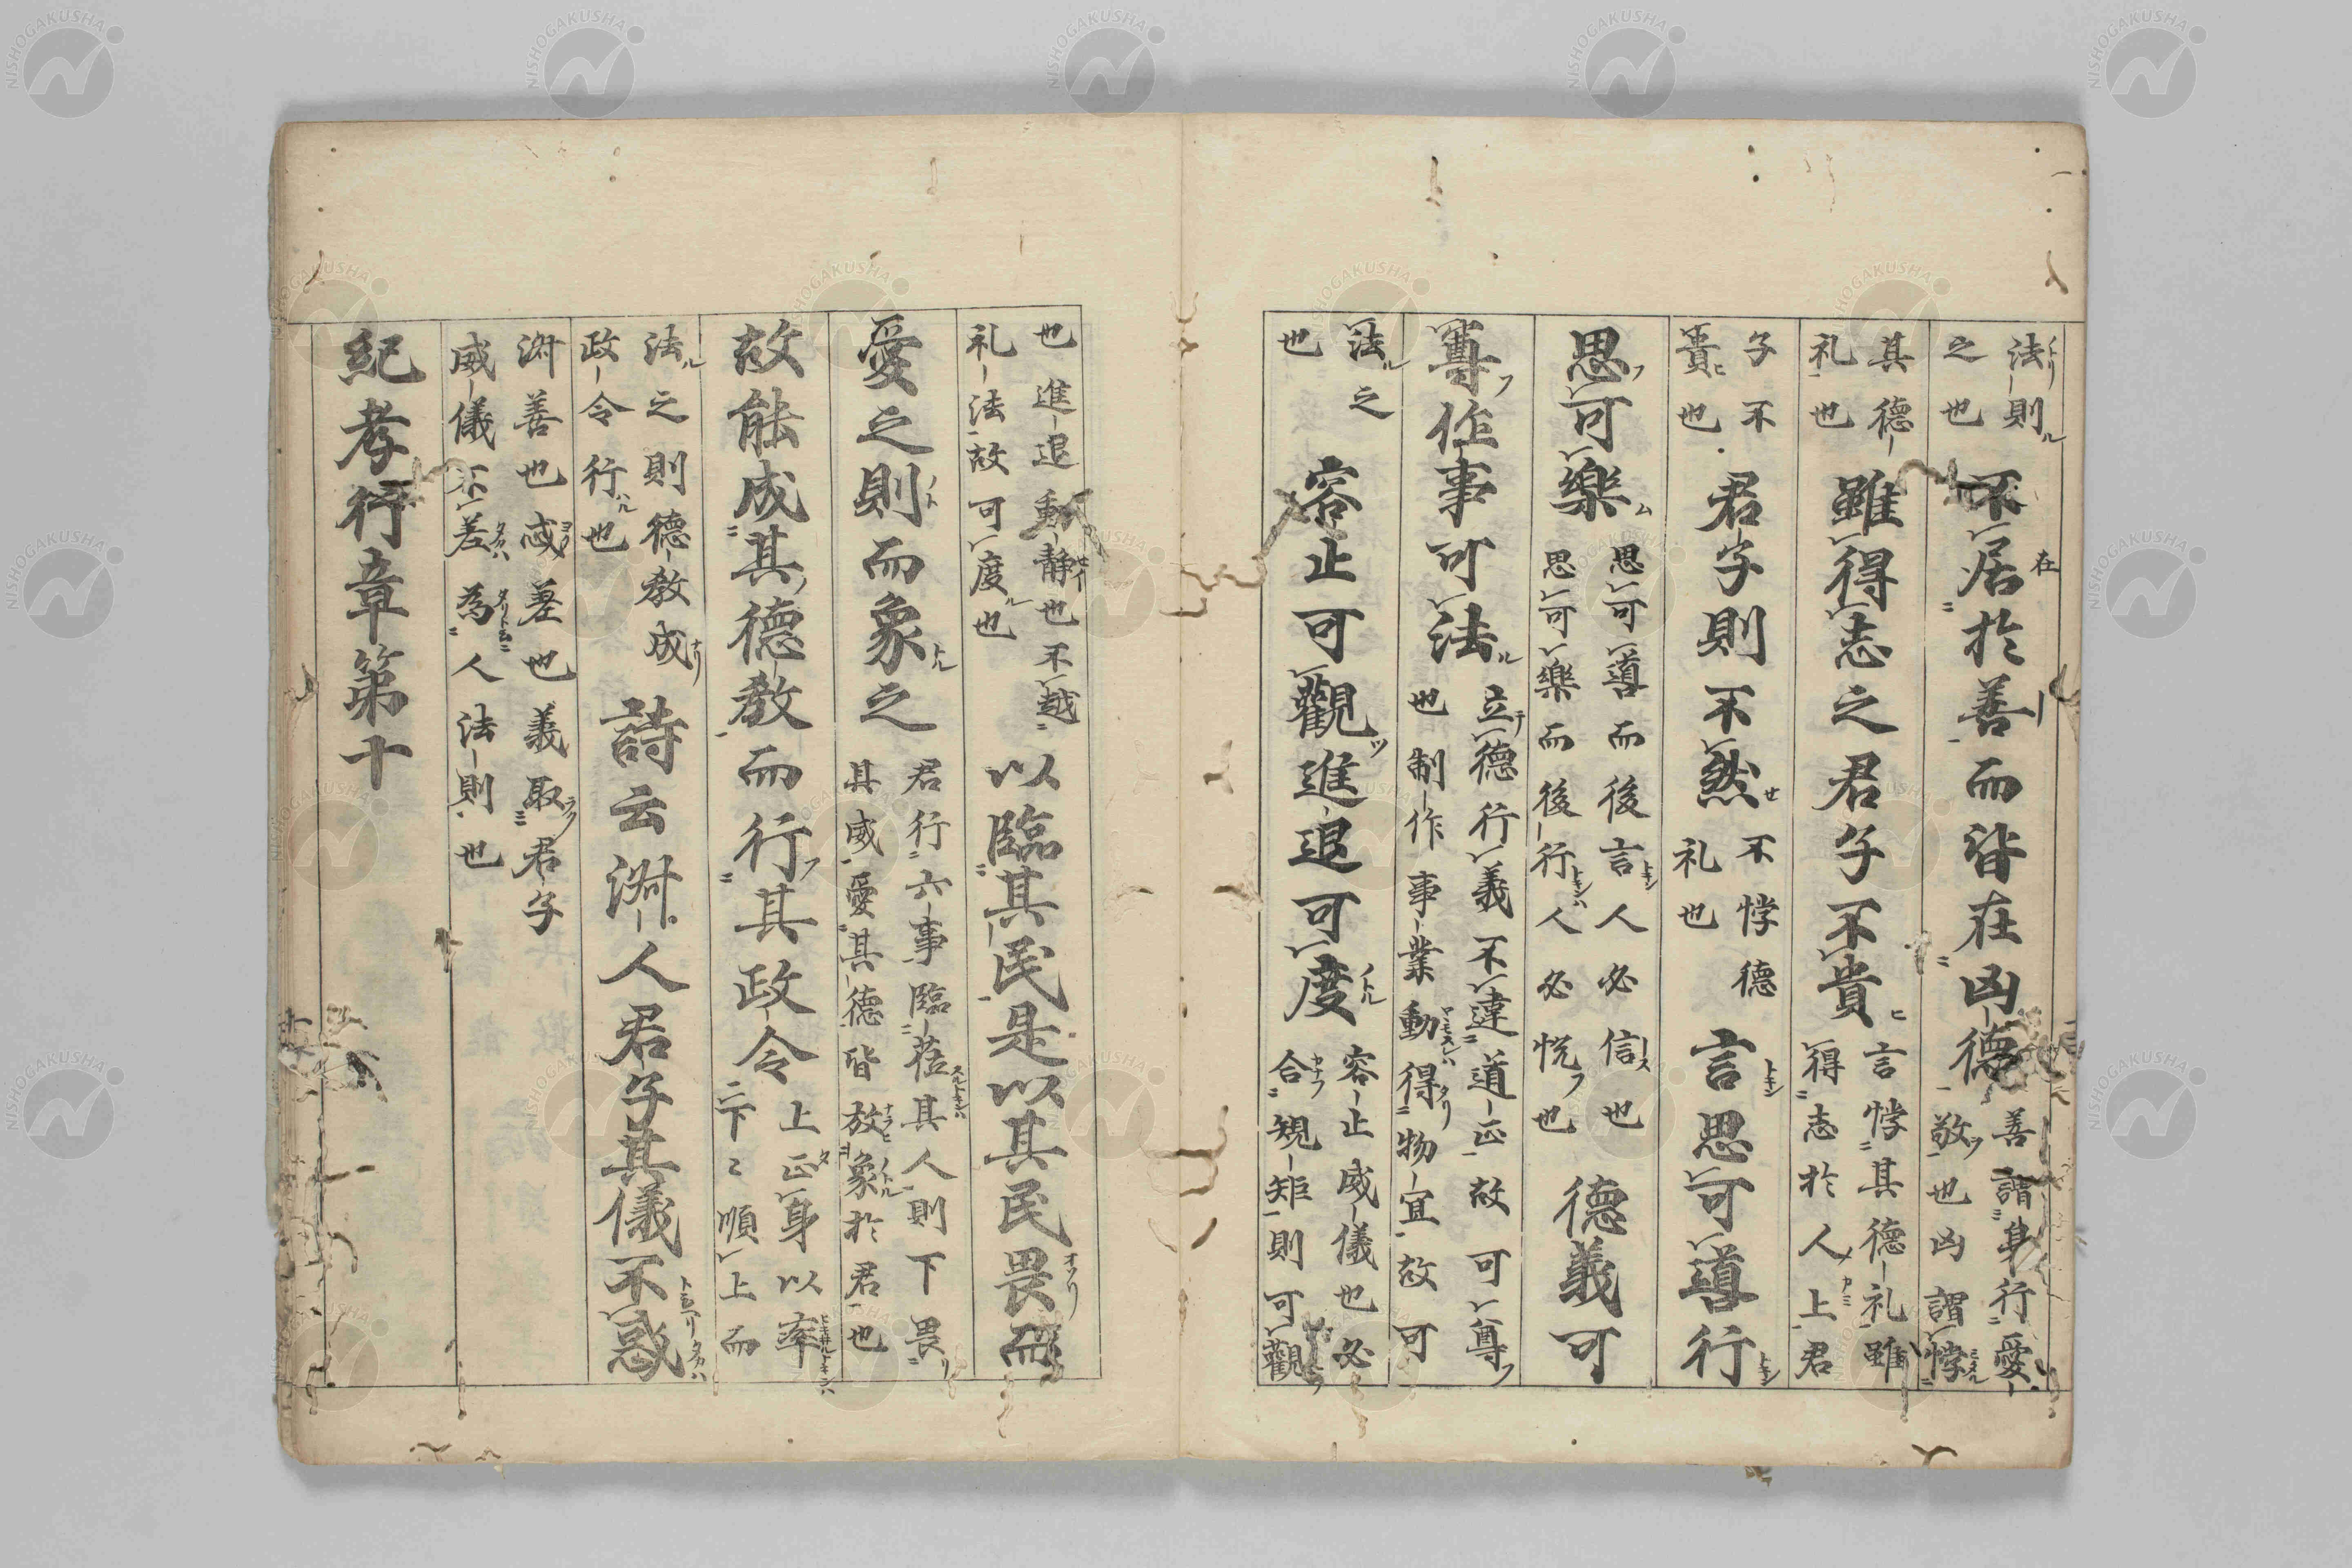 法則
之也
不居於善而皆在凶德
善謂身行愛
敬也凶謂悖
其德
礼也
雖得志之君子不貴
言悖其德礼雖
得志於人上君
子不
貴也
君子則不然
不悖德
礼也
言思可導行
思可樂
思可導而後言人必信也
思可樂而後行人必悦也
德義可
尊作事可法
立德行義不違道正故可尊
也制作事業動得物宜故可
法之
也
容止可觀進退可度
容止威儀也必
合規矩則可觀
也進退動静也不越
礼法故可度也
以臨其民是以其民畏而
愛之則而象之
君行六事臨莅其人則下畏
其威愛其德皆放象於君也
故能成其德教而行其政令
上正身以率
下下順上而
法之則德教成
政令行也
詩云淑人君子其儀不忒
淑善也忒差也義取君子
威儀不差為人法則也
紀孝行章第十
NISHOGAKUSHA